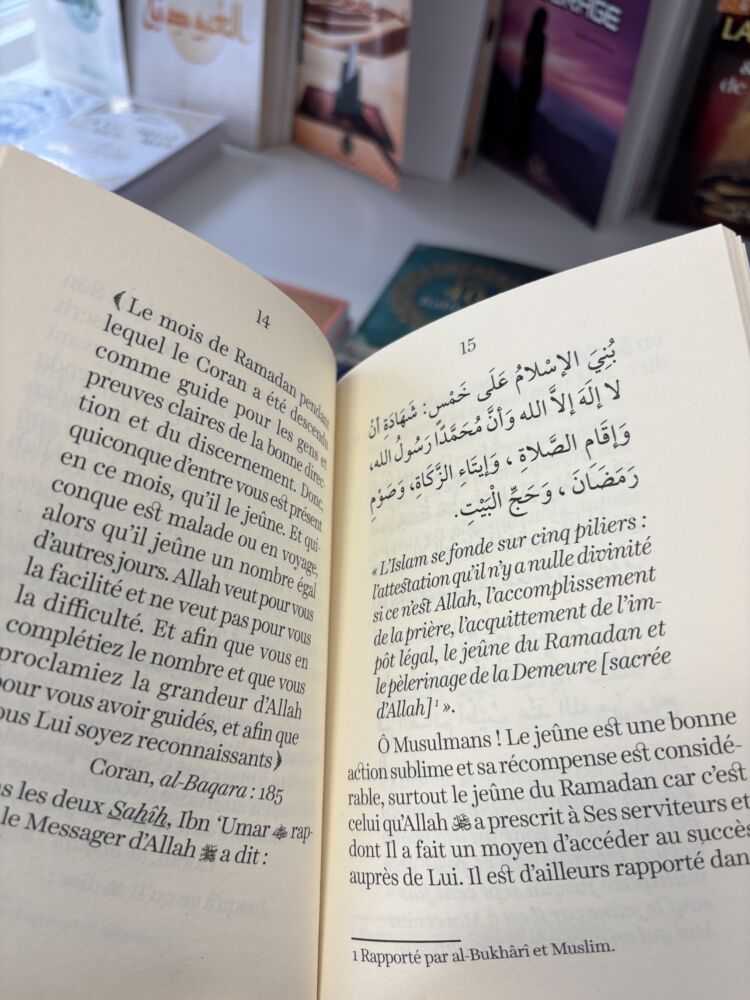 العبودية
14
﴾Le mois de Ramadan pendant
lequel le Coran a été descendu
comme guide pour les gens et
preuves claires de la bonne direc-
tion et du discernement. Donc,
quiconque d'entre vous est présent
en ce mois, qu'il le jeûne. Et qui-
conque est malade ou en voyage,
alors qu'il jeûne un nombre égal
d'autres jours. Allah veut pour vous
la facilité et ne veut pas pour vous
la difficulté. Et afin que vous en
complétiez le nombre et que vous
proclamiez la grandeur d'Allah
pour vous avoir guidés, et afin que
vous Lui soyez reconnaissants﴿
Coran, al-Baqara : 185
les deux Sahîh, Ibn ‘Umar rap-
le Messager d'Allah ﷺ a dit :
15
بُنِيَ الإِسْلامُ عَلَى خَمْسٍ: شَهَادَةِ أَنْ
لا إِلَهَ إِلاَّ الله وَأَنَّ مُحَمَّدًا رَسُولُ الله،
وَإِقَامِ الصَّلاةِ ، وَإِيتَاءِ الزَّكَاةِ، وَصَوْمِ
رَمَضَانَ ، وَحَجِّ الْبَيْتِ.
« L'Islam se fonde sur cinq piliers :
l'attestation qu'il n'y a nulle divinité
si ce n'est Allah, l'accomplissement
de la prière, l'acquittement de l'im-
pôt légal, le jeûne du Ramadan et
le pèlerinage de la Demeure [sacrée
d'Allah]¹ ».
Ô Musulmans ! Le jeûne est une bonne
action sublime et sa récompense est considé-
rable, surtout le jeûne du Ramadan car c'est
celui qu'Allah a prescrit à Ses serviteurs et
dont Il a fait un moyen d'accéder au succès
auprès de Lui. Il est d'ailleurs rapporté dan
1 Rapporté par al-Bukhârî et Muslim.